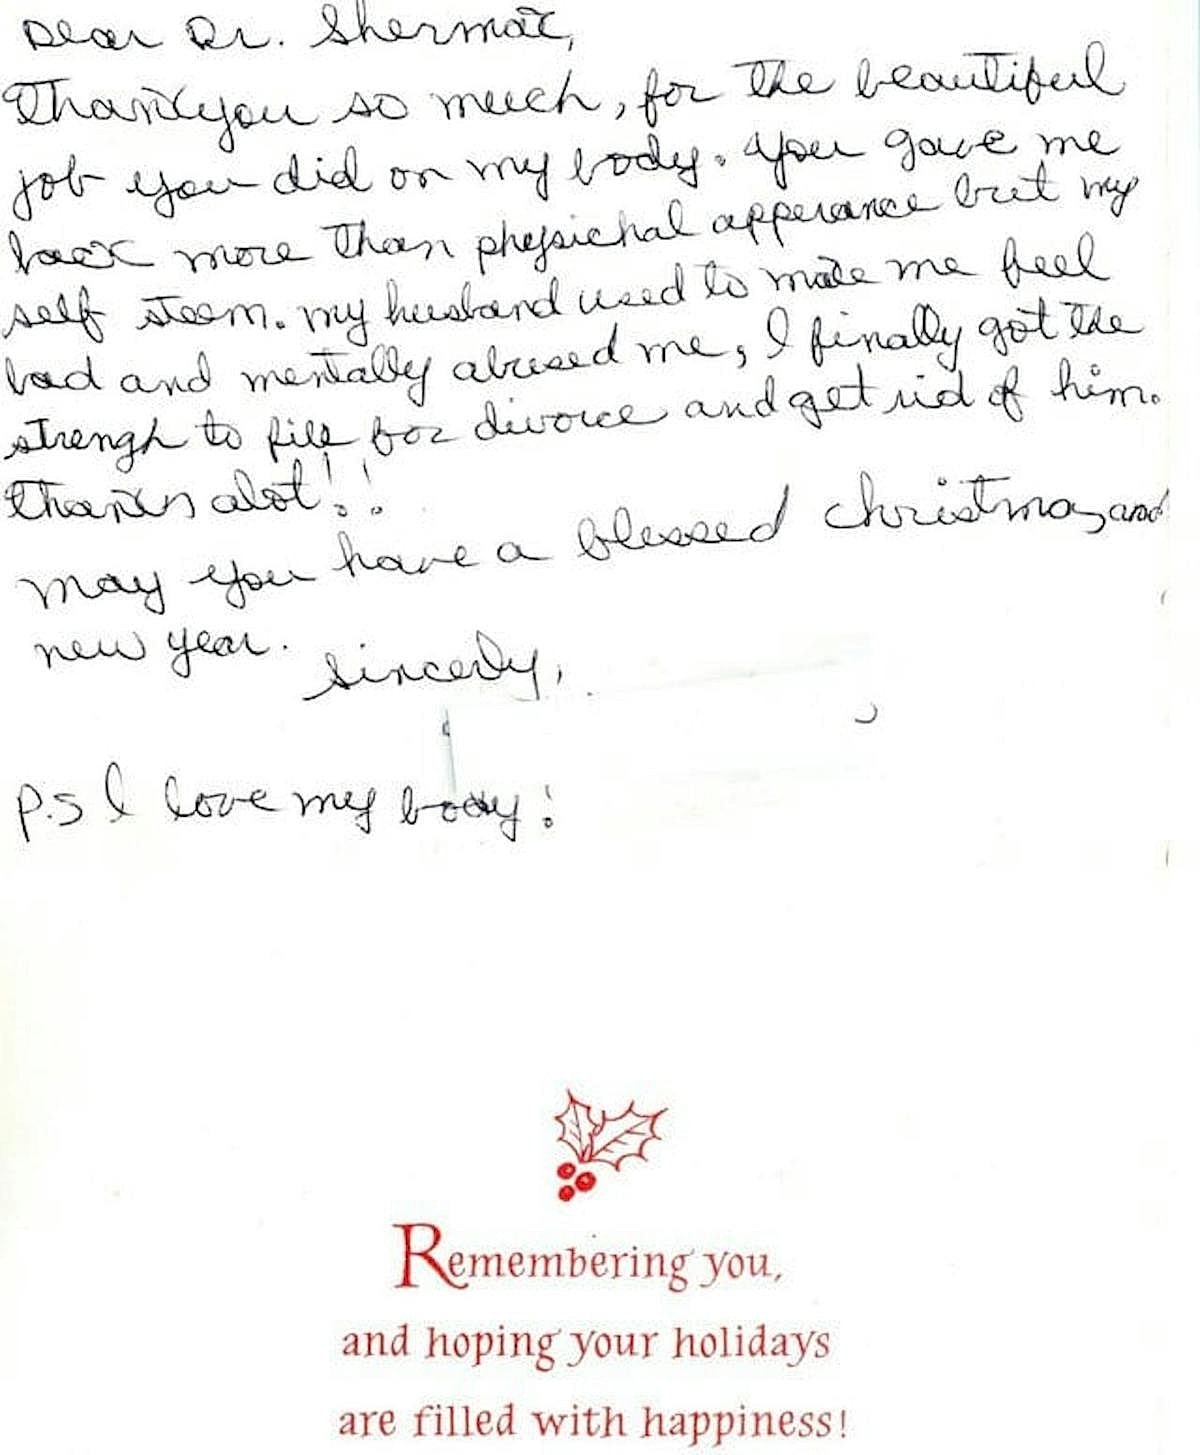 Dear Dr. Shermak,
Thank you so much, for the beautiful
job you did on my body. You gave me
back more than physichal apperance but my
self steem. my husband used to make me feel
bad and mentally abused me, I finally got the
strengh to file for divorce and get rid of him.
thanks alot!!
may you have a blessed christmas and
new year.
sincerly,
P.S I love my body!
Remembering you,
and hoping your holidays
are filled with happiness!